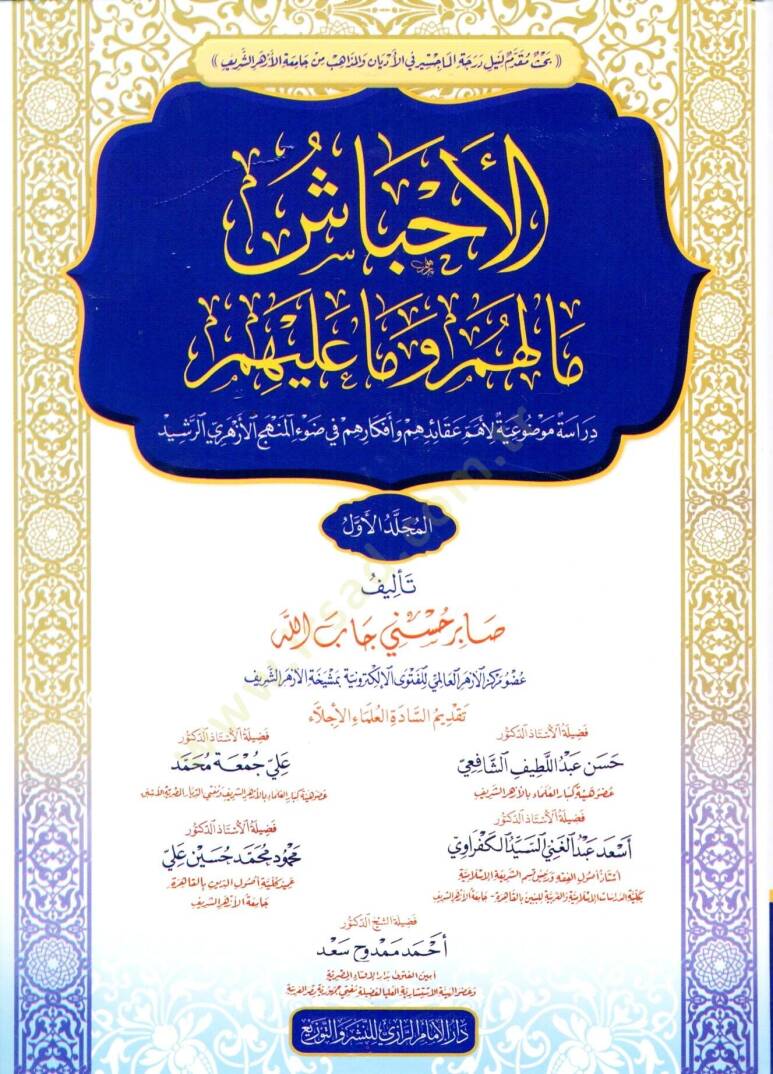 « بَحْثٌ مُقَدَّمٌ لِنَيْلِ دَرَجَةِ الْمَاجِسْتِيرِ فِي الأَدْيَانِ وَالْمَذَاهِبِ مِنْ جَامِعَةِ الأَزْهَرِ الشَّرِيفِ »
الأَحْبَاشُ
مَا لَهُمْ وَمَا عَلَيْهِمْ
دِرَاسَةٌ مَوْضُوعِيَّةٌ لأَهَمِّ عَقَائِدِهِمْ وَأَفْكَارِهِمْ فِي ضَوْءِ المَنْهَجِ الأَزْهَرِيِّ الرَّشِيدِ
المُجَلَّدُ الأَوَّلُ
تَأْلِيفُ
صَابِر حُسْنِي جَابَ اللَّه
عُضْوُ مَرْكَزِ الأَزْهَرِ العَالَمِيِّ لِلْفَتْوَى الإِلِكْتِرُونِيَّةِ بِمَشْيَخَةِ الأَزْهَرِ الشَّرِيفِ
تَقْدِيمُ السَّادَةِ العُلَمَاءِ الأَجِلَّاءِ
فَضِيلَةُ الأُسْتَاذِ الدُّكْتُور
حَسَن عَبْدُ اللَّطِيفِ الشَّافِعِيّ
عضو هيئة كبار العلماء بالأزهر الشريف
فَضِيلَةُ الأُسْتَاذِ الدُّكْتُور
عَلِيّ جُمْعَة مُحَمَّد
عضو هيئة كبار العلماء بالأزهر الشريف ومفتي الديار المصرية الأسبق
فَضِيلَةُ الأُسْتَاذِ الدُّكْتُور
أَسْعَد عَبْدُ الغَنِي السَّيِّد الكَفْرَاوِي
أستاذ أصول الفقه ورئيس قسم الشريعة الإسلامية
بكلية الدراسات الإسلامية والعربية للبنين بالقاهرة - جامعة الأزهر الشريف
فَضِيلَةُ الأُسْتَاذِ الدُّكْتُور
مَحْمُود مُحَمَّد حُسَيْن عَلِيّ
عميد كلية أصول الدين بالقاهرة
جامعة الأزهر الشريف
فَضِيلَةُ الشَّيْخِ الدُّكْتُور
أَحْمَد مَمْدُوح سَعْد
أمين الفتوى بدار الإفتاء المصرية
وعضو الهيئة الاستشارية العليا لفضيلة مفتي جمهورية مصر العربية
دَارُ الإِمَامِ الرَّازِي لِلنَّشْرِ وَالتَّوْزِيعِ